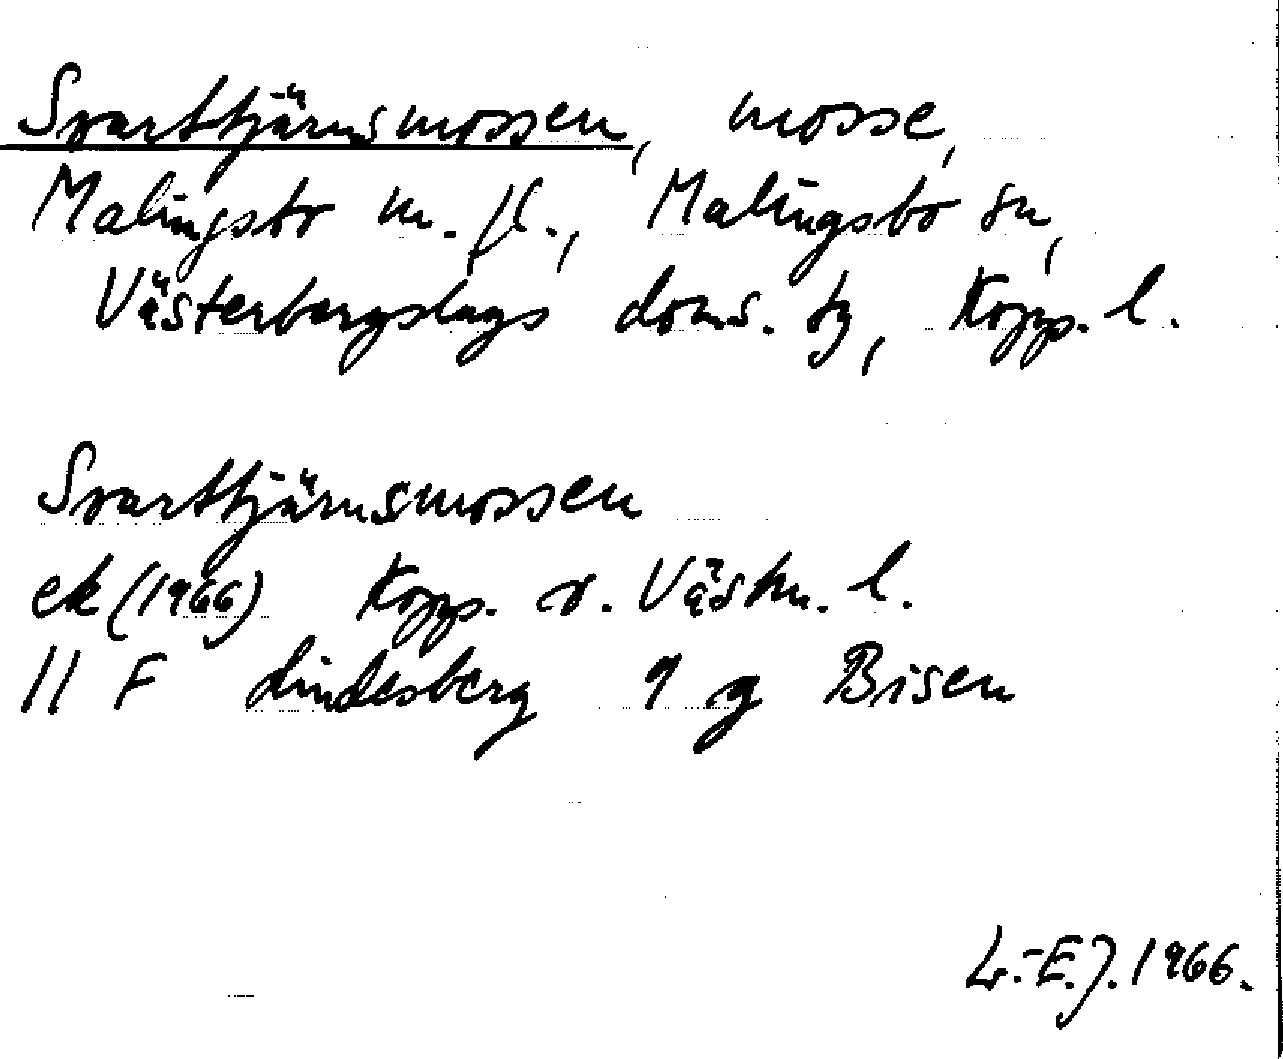 Svarttjärnsmossen, mosse,
Malingsbo m. fl., Malingsbo sn,
Västerbergslags doms. tg, Kopp. l.
Svarttjärnsmossen
ek (1966) Kopp. o. Västm. l.
11 F Lindesberg 9 g Bisen
L.-E.J. 1966.